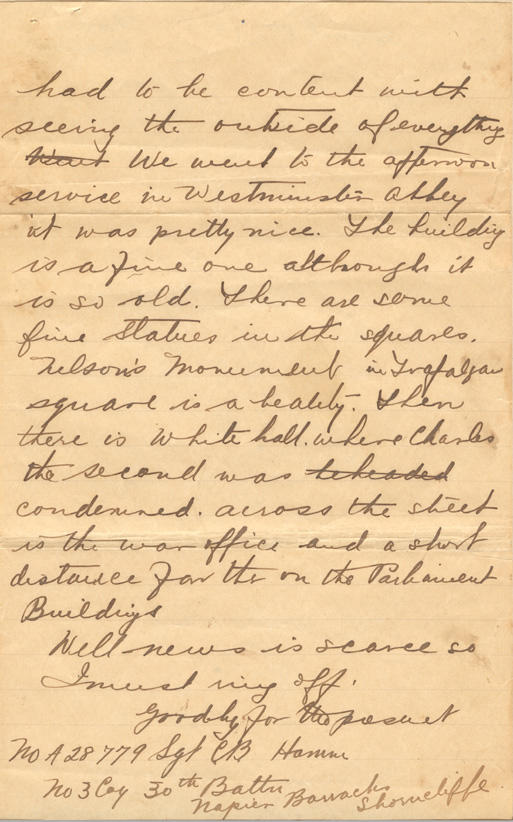 had to be content with
seeing the outside of everything
Went We went to the afternoon
service in Westminster Abbey
it was pretty nice. The building
is a fine one although it
is so old. There are some
fine statues in the squares.
Nelson's Monument in Trafalgar
square is a beauty. Then
there is White hall. where Charles
the second was beheaded
condemned. across the street
is the war office and a short
distance farther on the Parliament
Buildings
Well news is scarce so
I must ring off.
Goodby for the present
No A 28779 Sgt CB Hamm
No 3 Coy 30th Battn
Napier Barracks Shorncliffe.